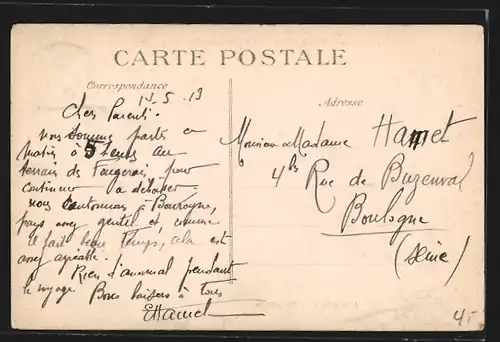 CARTE POSTALE
Correspondance
Adresse
14.5.13
Chers Parents.
nous somme partis ce
matin à 5 heures au
terrain de Fougerais pour
continuer a
nous cantonnons à Bourogne,
pays assez gentil et comme
il fait beau temps, cela est
assez agréable.
Rien d'anormal pendant
le voyage. Bons baisers à tous
EHamet
Monsieur Madame Hamet
4 bis Rue de Buzenval
Boulogne
(Seine)
4.-